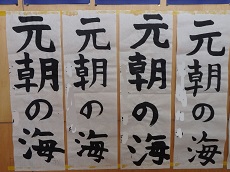 元朝の海
元朝の海
元朝の海
元朝の海